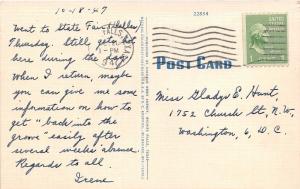 10-18-47
22854
Went to State Fair, Dallas,
Thursday. Still gets hot
here during the day.
When I return, maybe
you can give me some
information on how to
get "back into the
groove" easily after
several weeks' absence.
Regards to all.
Irene
POST CARD
Miss Gladys E. Hunt,
1752 Church St. N.W.
Washington, 6, D.C.